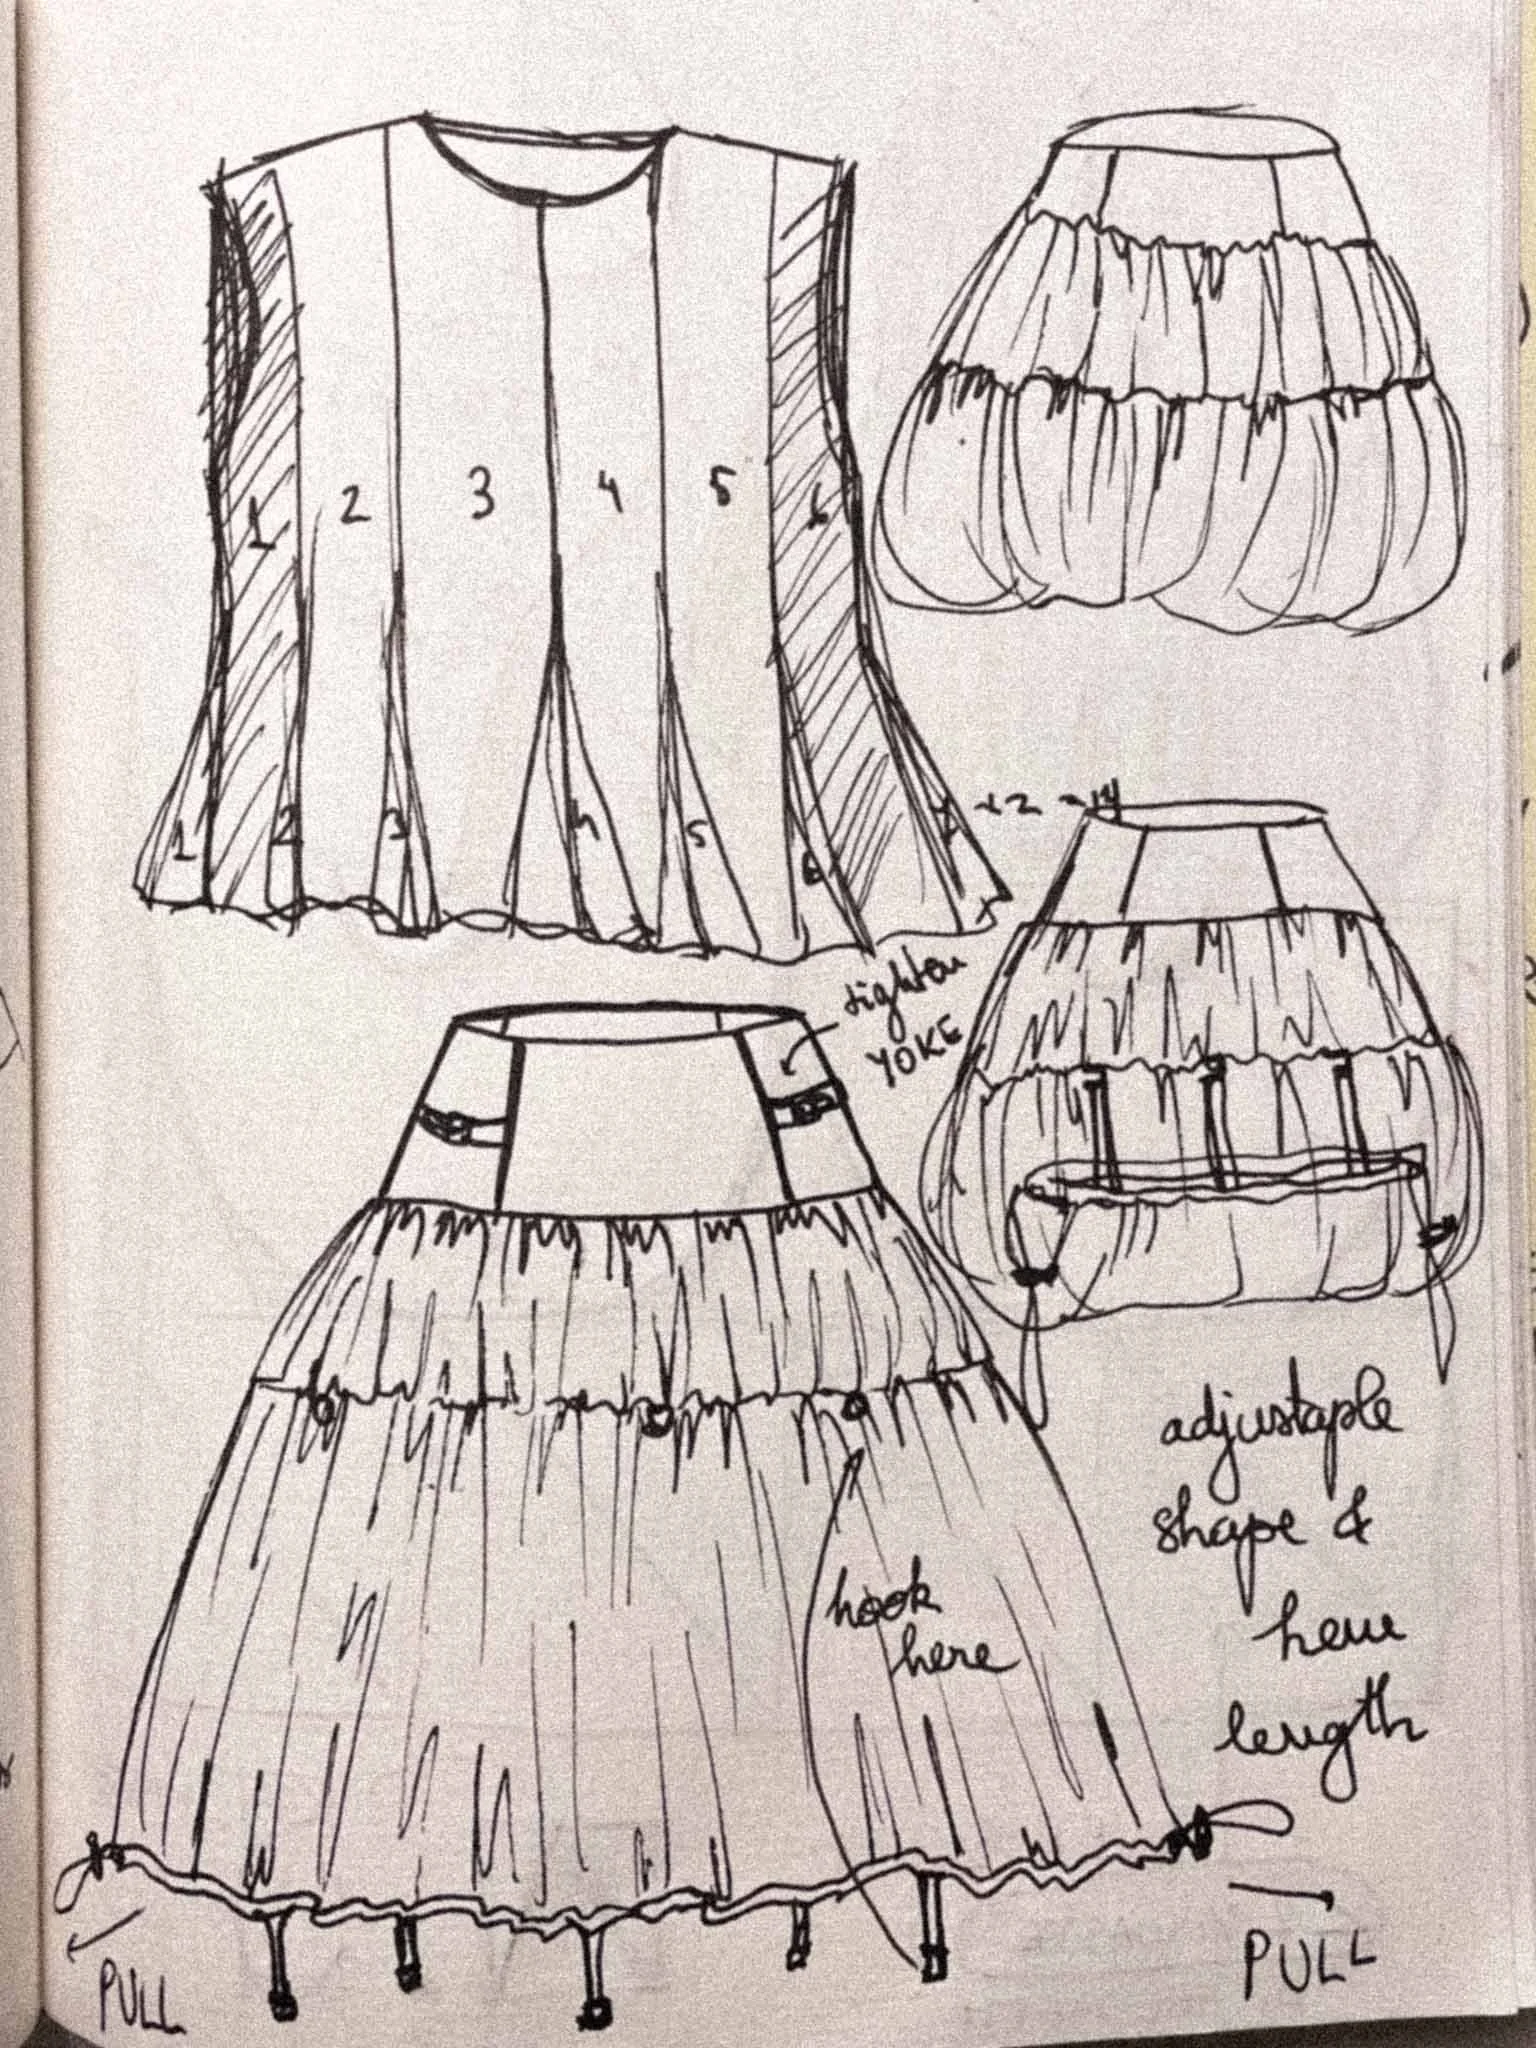 1 2 3 4 5 6
1 2 3 4 5 6 7 x2 = 14
tighten
YOKE
adjustaple
shape &
hem
length
hook
here
PULL
PULL